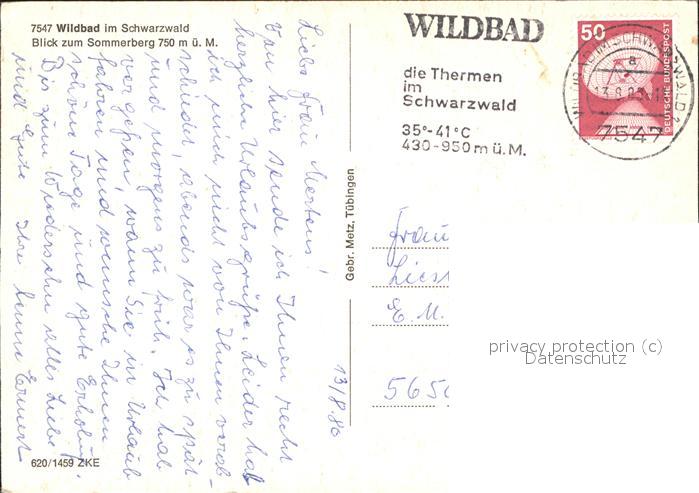 7547 Wildbad im Schwarzwald
Blick zum Sommerberg 750 m ü. M.
WILDBAD
die Thermen
im
Schwarzwald
35°-41°C
430-950 m ü. M.
50
DEUTSCHE BUNDESPOST
WILDBAD IM SCHWARZWALD 1
a
7547
13/8.86
Liebe Frau Mertens!
Von hier sende ich Ihnen recht
herzliche Urlaubsgrüße. Leider hab
ich mich nicht von Ihnen verab-
schiedet, abends war es zu spät
und morgens zu früh. Ich hab
vergessen, wann Sie in Urlaub
fahren und wünsche Ihnen
schöne Tage und gute Erholung.
Bis zum Wiedersehn alles Liebe
und Gute Ihre
Gebr. Metz, Tübingen
Frau
E. M.
565
privacy protection (c)
Datenschutz
620/1459 ZKE